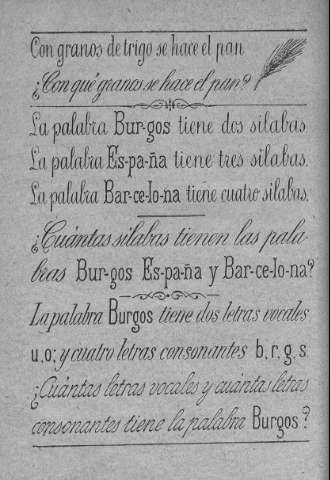 Con granos de trigo se hace el pan
¿Con qué granos se hace el pan?
La palabra Bur-gos tiene dos sílabas
La palabra Es-pa-ña tiene tres sílabas
La palabra Bar-ce-lo-na tiene cuatro sílabas.
¿Cuántas sílabas tienen las pala-
bras Bur-gos Es-pa-ña y Bar-ce-lo-na?
La palabra Burgos tiene dos letras vocales
u, o; y cuatro letras consonantes b, r, g, s.
¿Cuántas letras vocales y cuántas letras
consonantes tiene la palabra Burgos?